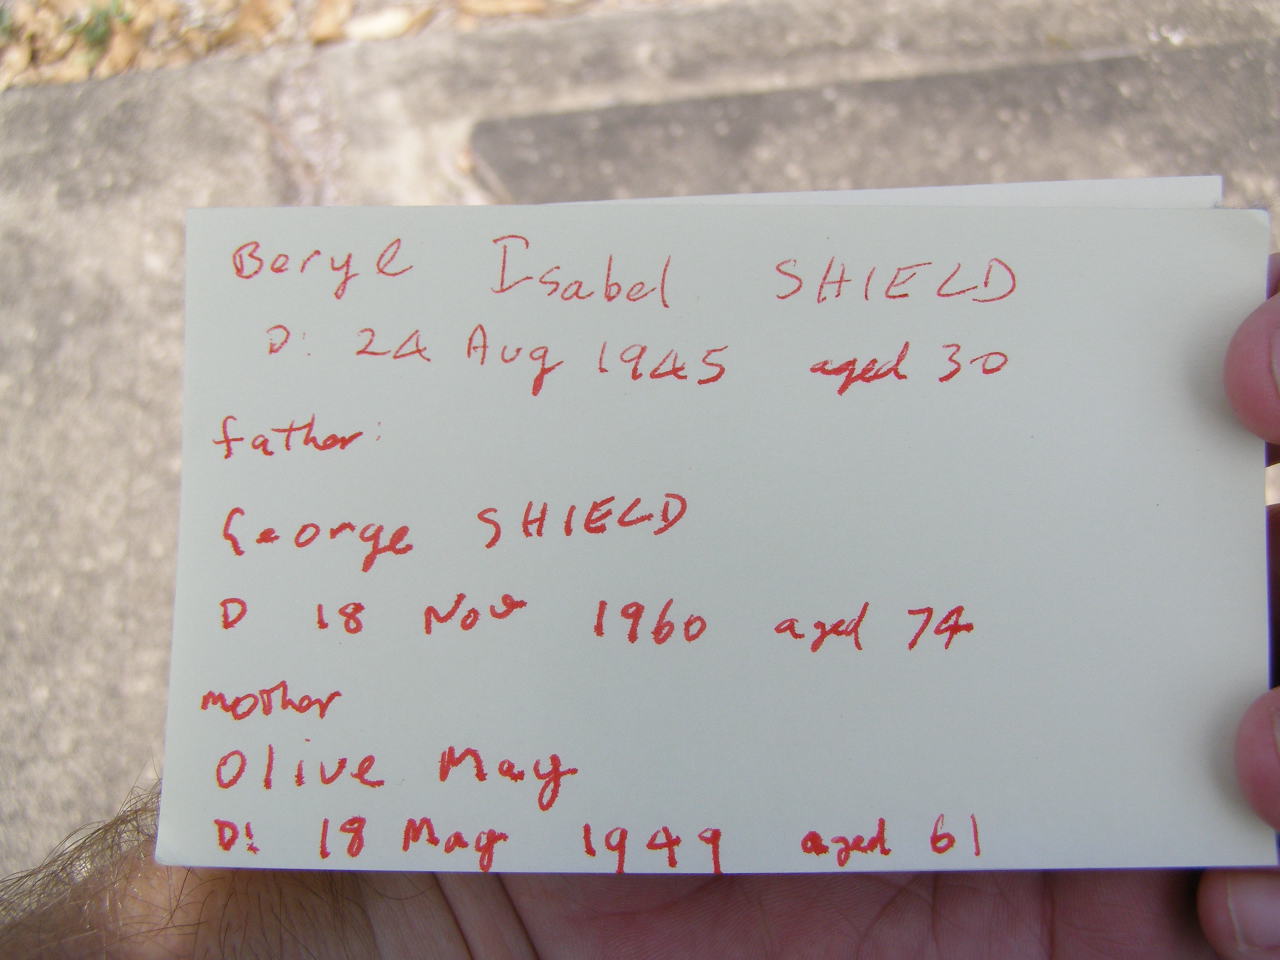 Beryl Isabel SHIELD
D: 24 Aug 1945 aged 30
father:
George SHIELD
D 18 Nov 1960 aged 74
mother
Olive May
D: 18 May 1949 aged 61